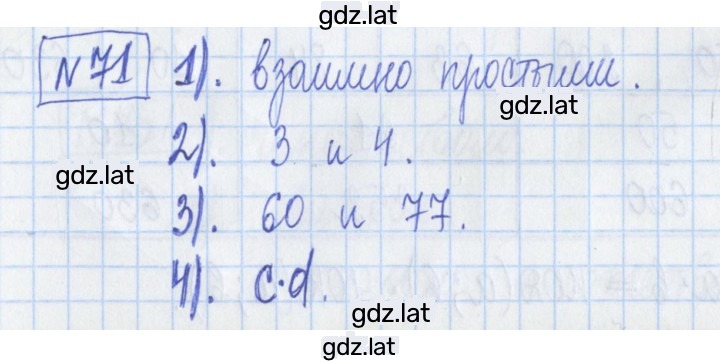 gdz.lat
№71 1). взаимно простыми.
gdz.lat
2). 3 и 4.
gdz.lat
3). 60 и 77.
gdz.lat
4). c·d.
gdz.lat
gdz.lat